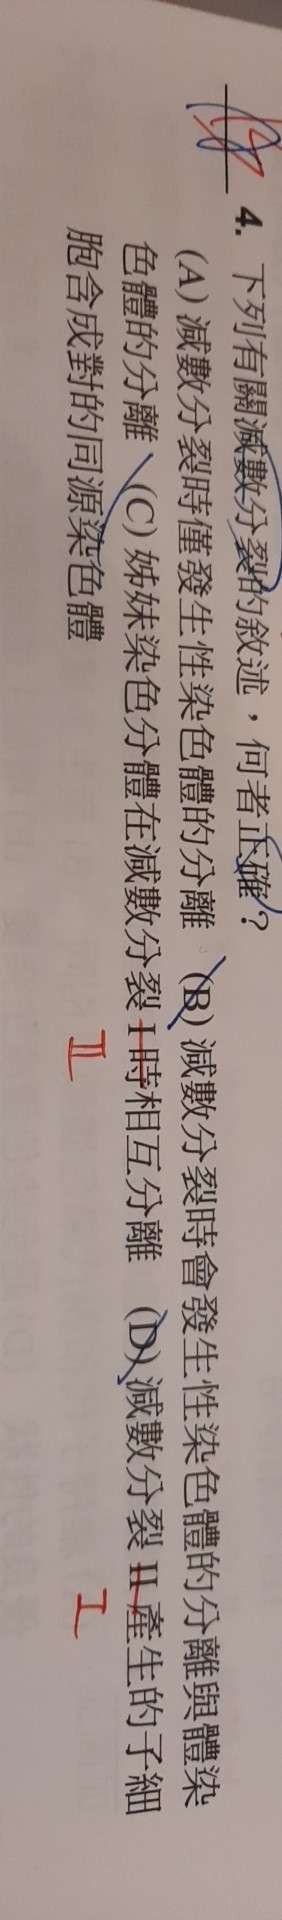 4. 下列有關減數分裂的敘述，何者正確？
(A) 減數分裂時僅發生性染色體的分離 (B) 減數分裂時會發生性染色體的分離與體染
色體的分離 (C) 姊妹染色分體在減數分裂 I 時相互分離 (D) 減數分裂 II 產生的子細
II
I
胞含成對的同源染色體